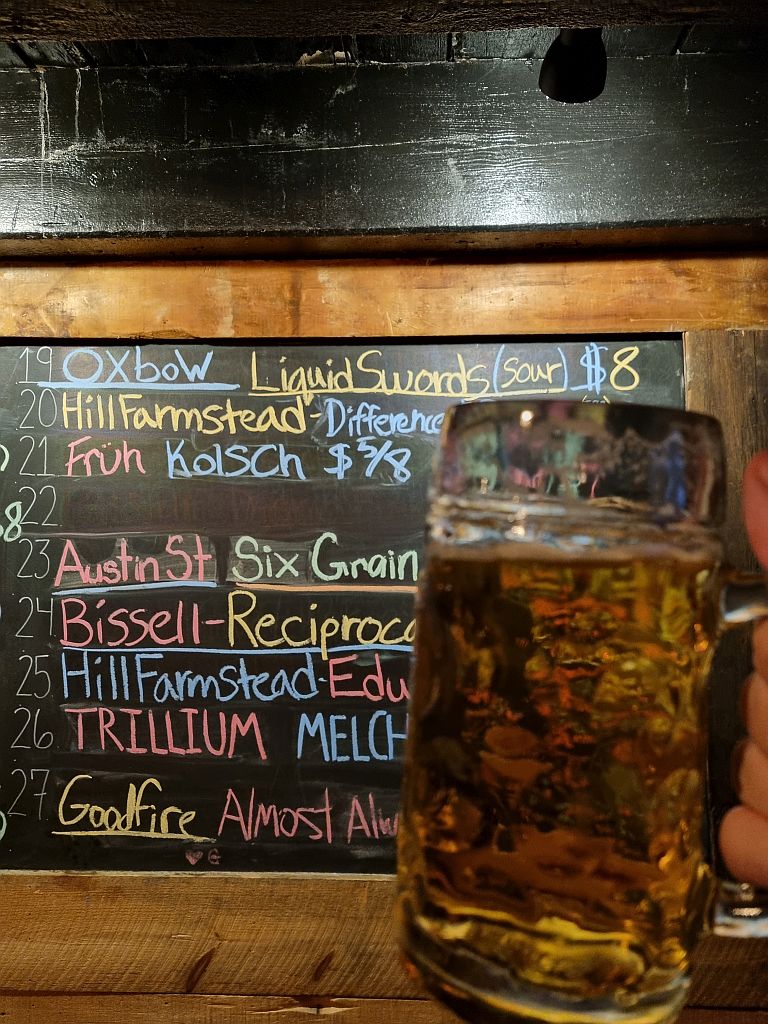 19 Oxbow Liquid Swords (Sour) $8
20 Hill Farmstead - Difference
21 Früh Kolsch $5/8
22
23 Austin St Six Grain
24 Bissell - Reciproca
25 Hill Farmstead - Edw
26 TRILLIUM MELCH
27 Goodfire Almost Alw
♥ G